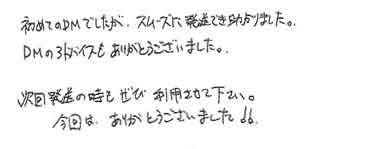 初めてのDMでしたが、スムーズに発送でき助かりました。
DMのアドバイスもありがとうございました。
次回発送の時もぜひ利用させて下さい。
今回は、ありがとうございました!!